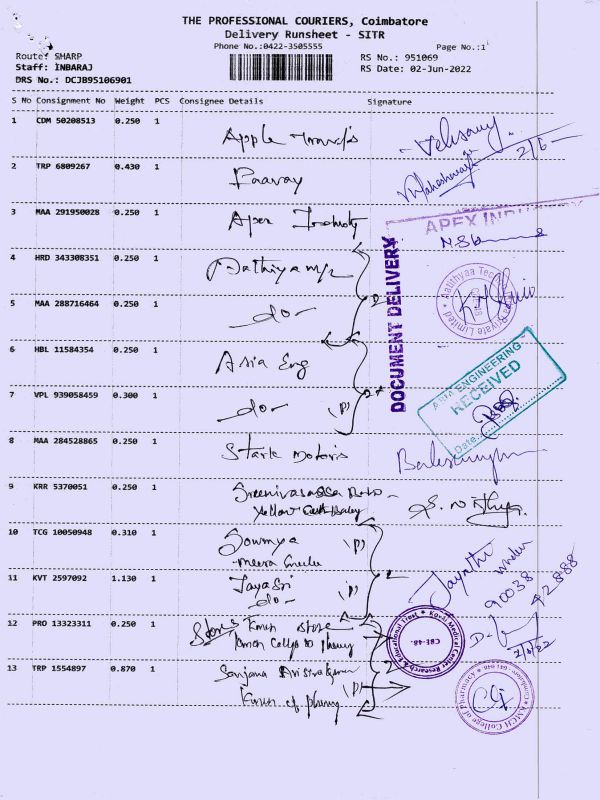 THE PROFESSIONAL COURIERS, Coimbatore
Delivery Runsheet - SITR
Phone No.:0422-3505555
Page No.:1
Route: SHARP
Staff: INBARAJ
DRS No.: DCJB95106901
RS No.: 951069
RS Date: 02-Jun-2022
S No Consignment No Weight PCS Consignee Details Signature
1 CDM 50208513 0.250 1
Apple
2/6
2 TRP 6809267 0.430 1
Paavay
3 MAA 291950028 0.250 1
Apex
APEX INDUSTRY
4 HRD 343308351 0.250 1
DOCUMENT DELIVERY
Private Limited
5 MAA 288716464 0.250 1
do
6 HBL 11584354 0.250 1
Asia Eng
ASIA ENGINEERING
RECEIVED
Date
7 VPL 939058459 0.300 1
do (P)
8 MAA 284528865 0.250 1
Stark Motors
9 KRR 5370051 0.250 1
Yellow
10 TCG 10050948 0.310 1
Sowmya (P)
11 KVT 2597092 1.130 1
Jaya Sri (P)
do
Jayathi
90038 42888
12 PRO 13323311 0.250 1
Stores Kmch store
Kovai Medical Center Research & Educational Trust
CBE-48.
2/6/22
13 TRP 1554897 0.870 1
Sanjana (P)
KMCH College of Pharmacy
Coimbatore - 641 048